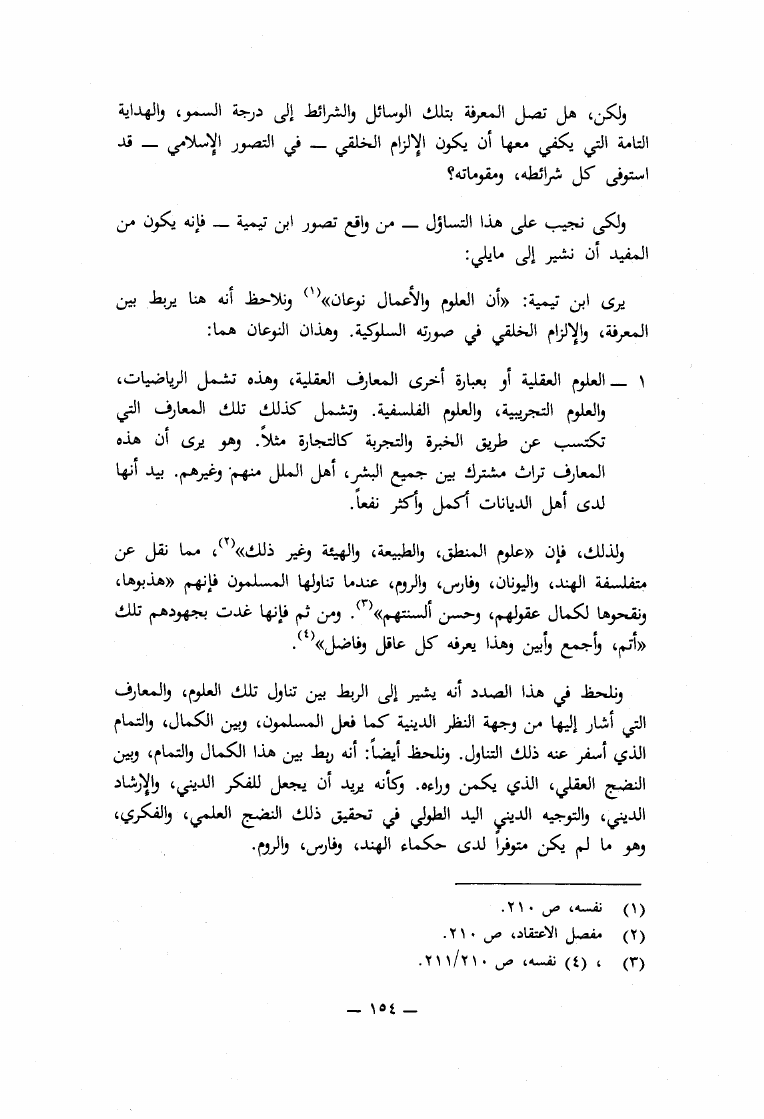 ولكن، هل تصل المعرفة بتلك الوسائل والشرائط إلى درجة السمو، والهداية
التامة التي يكفي معها أن يكون الإلزام الخلقي — في التصور الإسلامي — قد
استوفى كل شرائطه، ومقوماته؟
ولكى نجيب على هذا التساؤل — من واقع تصور ابن تيمية — فإنه يكون من
المفيد أن نشير إلى مايلي:
يرى ابن تيمية: «أن العلوم والأعمال نوعان»(١) ونلاحظ أنه هنا يربط بين
المعرفة، والإلزام الخلقي في صورته السلوكية. وهذان النوعان هما:
١ — العلوم العقلية أو بعبارة أخرى المعارف العقلية، وهذه تشمل الرياضيات،
والعلوم التجريبية، والعلوم الفلسفية. وتشمل كذلك تلك المعارف التي
تكتسب عن طريق الخبرة والتجربة كالتجارة مثلاً. وهو يرى أن هذه
المعارف تراث مشترك بين جميع البشر، أهل الملل منهم وغيرهم. بيد أنها
لدى أهل الديانات أكمل وأكثر نفعاً.
ولذلك، فإن «علوم المنطق، والطبيعة، والهيئة وغير ذلك»(٢)، مما نقل عن
متفلسفة الهند، واليونان، وفارس، والروم، عندما تناولها المسلمون فإنهم «هذبوها،
ونقحوها لكمال عقولهم، وحسن ألسنتهم»(٣). ومن ثم فإنها غدت بجهودهم تلك
«أتم، وأجمع وأبين وهذا يعرفه كل عاقل وفاضل»(٤).
ونلحظ في هذا الصدد أنه يشير إلى الربط بين تناول تلك العلوم، والمعارف
التي أشار إليها من وجهة النظر الدينية كما فعل المسلمون، وبين الكمال، والتمام
الذي أسفر عنه ذلك التناول. ونلحظ أيضاً: أنه ربط بين هذا الكمال والتمام، وبين
النضج العقلي، الذي يكمن وراءه. وكأنه يريد أن يجعل للفكر الديني، والإرشاد
الديني، والتوجيه الديني اليد الطولي في تحقيق ذلك النضج العلمي، والفكري،
وهو ما لم يكن متوفراً لدى حكماء الهند، وفارس، والروم.
(١) نفسه، ص ٢١٠.
(٢) مفصل الاعتقاد، ص ٢١٠.
(٣) ، (٤) نفسه، ص ٢١١/٢١٠.
— ١٥٤ —